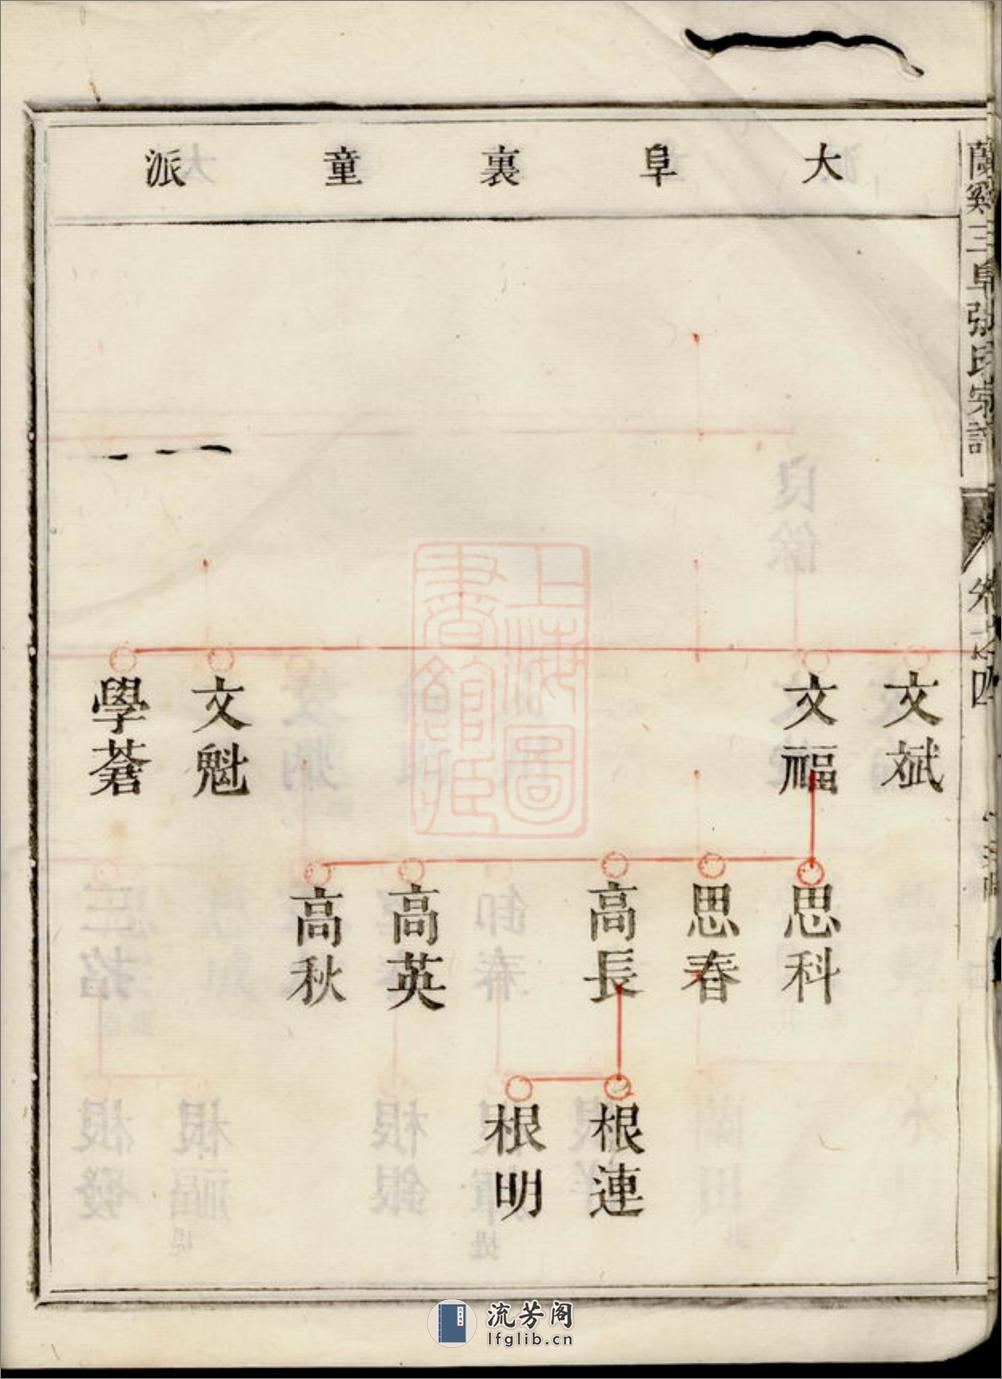 大阜裏童派
蘭谿三阜張氏宗譜
卷之四
文斌
文福
文魁
學蒼
思科
思春
高長
高英
高秋
根連
根明
上海圖書館藏
流芳阁
lfglib.cn